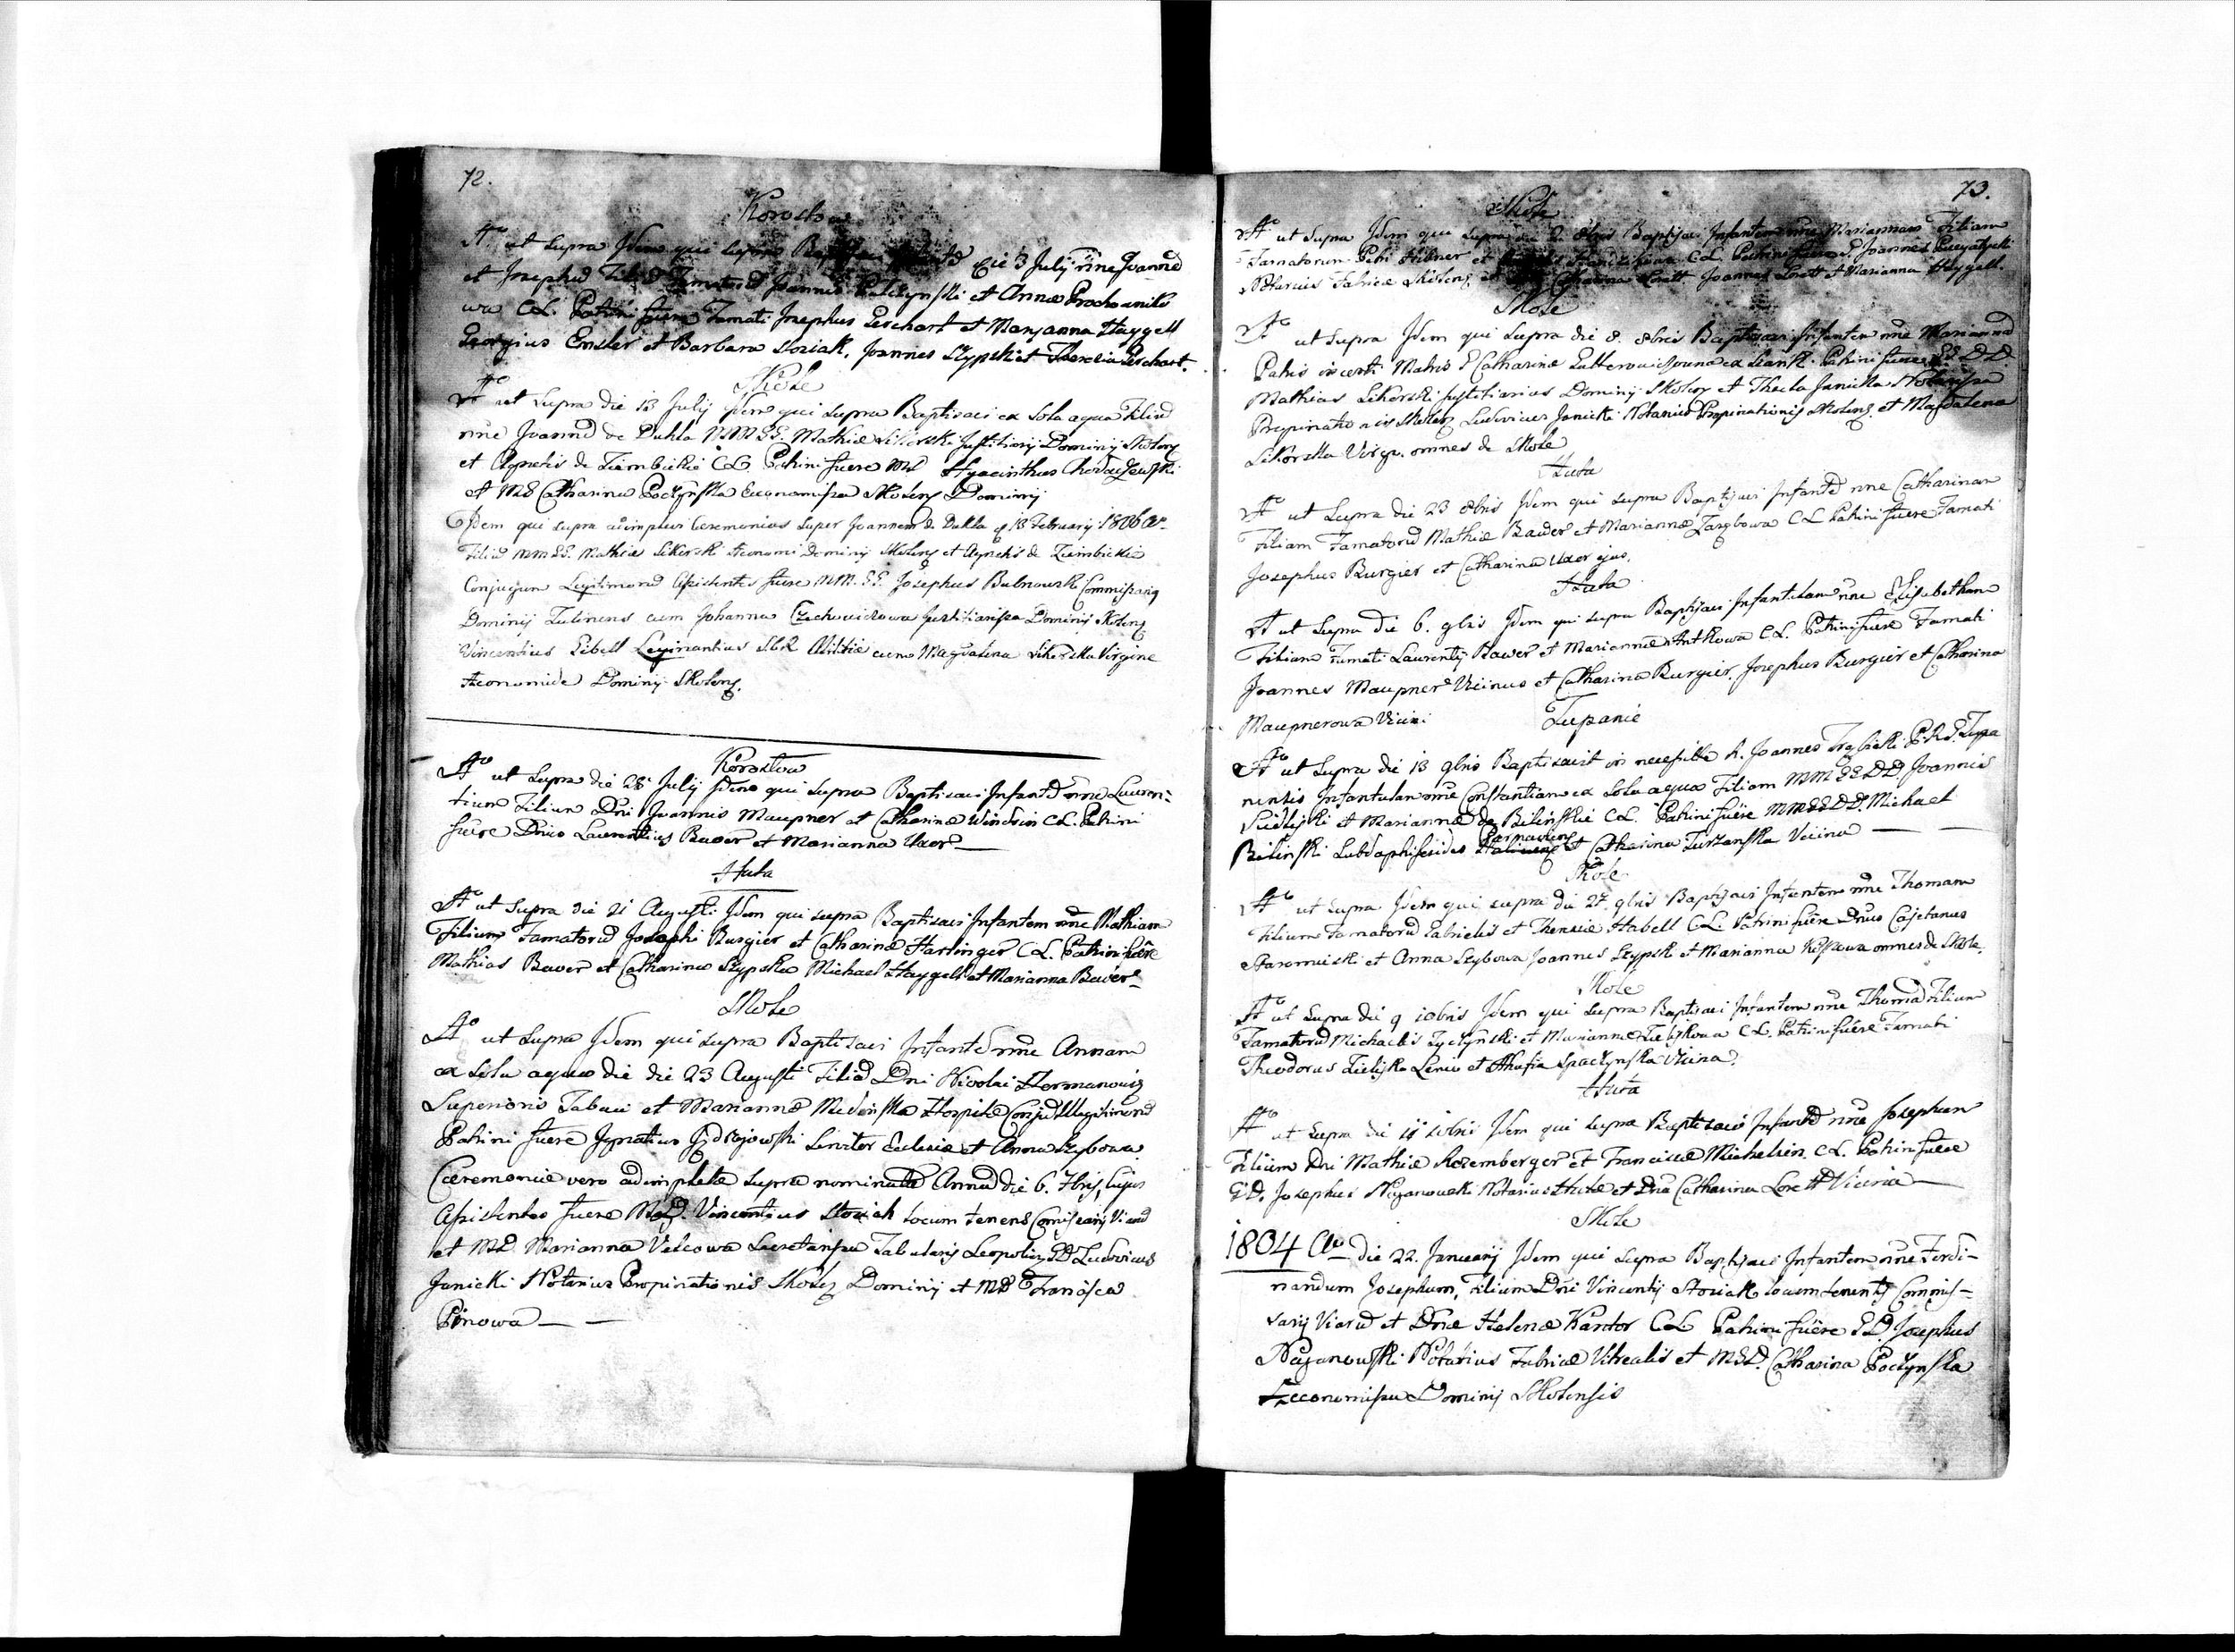 72.
Korostow
Aº ut supra Idem qui supra die 3 July nne Joannē
et Josephū Joannis et Annæ Prochowniko
wa CL. Patrini fuere Famati Josephus Leschart et Marjanna Haygell
Georgius Emsler et Barbara Stosiak, Joannes Szypski et Theresia Leschart.
Skole
Aº ut Supra die 13 July Idem qui supra Baptisavi ex sola aqua Filiū
nne Joannē de Dukla MMGG. Mathiæ Sikorski Justitiarij Dominij Skolensꝫ
et Agnetis de Ziembickie CL. Patrini fuere MG Hyacinthus Chodaczewski
et MG Catharina Poczynska Economissa Skolensꝫ Dominij
Idem qui supra adimplevi Ceremonias super Joannem de Dukla 13 February 1806 Aº
Filiū MMGG. Mathiæ Sikorski Æconomi Dominij Skolensꝫ et Agnetis de Ziembickie
Conjugum Legitimorū Assistentes fuere MM. GG. Josephus Bulnowski Commissariꝰ
Dominij Tulinens cum Johanna Czechowiczowa Justitiarissa Dominij Skolensꝫ
Vincentius Eibell cum Magdalena Sikorska Virgine
Æconomide Dominij Skolensꝫ
Korostow
Aº ut Supra die 28 July Idem qui supra Baptisavi Infantē nne Lauren-
tium Filium Dni Joannis Maupner et Catharinæ Windvin CL. Patrini
fuere Dnus Laurentius Bawer et Marianna Uxor —
Huta
Aº ut Supra die 21 Augusti Idem qui supra Baptisavi Infantem nne Mathiam
Filium Famatorū Josephi Burgier et Catharinæ Hartinger CL. Patrini fuere
Mathias Bawer et Catharina Szypska Michael Haygell et Marianna Bawer
Skole
Aº ut Supra Idem qui supra Baptisavi Infantē nne Annam
ex sola aqua die die 23 Augusti Filiā Dni Nicolai Hormanowicz
Superioris Tabaci et Mariannæ Medinska Hospitæ Conjū Illegitimorū
Patrini fuere Ignatius Jędrzejowski Servitor Ecclesiæ et Anna Szybowa.
Cæremoniæ vero adimpletæ supra nominatā Annā die 6. 7bris, Cujus
Assistentes fuere MD. Vincentius Stosiak locum tenens Comissarij Viarū
et MD. Marianna Velcowa Secretarissa Tabularis Leopoliꝫ DD. Ludovicus
Janicki Notarius Propinationis Skolꝫ Dominij et MD Francisca
Pinowa — —
73.
Skole
Aº ut Supra Idem qui supra die 2. 8bris Baptisavi Infantem nne Mariannam Filiam
Famatorum Petri Hibner et CL. Patrini fuere Joannes
Notarius Fabricæ Skolensꝫ et Catharina Lorett Joannes Lorett et Marianna Haygell.
Skole
Aº ut Supra Idem qui supra die 8. 8bris Baptisavi Infantem nne Mariannā
Patris incerti Matris Catharinæ ex Patrini fuere GG. DD.
Mathias Sikorski Justitiarius Dominij Skolensꝫ et Thecla Janicka Notarissa
Propinationis Skolensꝫ Ludovicus Janicki Notarius Propinationis Skolensꝫ et Magdalena
Sikorska Virgo. omnes de Skole
Huta
Aº ut Supra die 23 8bris Idem qui supra Baptisavi Infantē nne Catharinam
Filiam Famatorū Mathiæ Bawer et Mariannæ CL Patrini fuere Famati
Josephus Burgier et Catharina Uxor ejus.
Huta
A ut Supra die 6. 9bris Idem qui supra Baptisavi Infantulam nne Elisabetham
Filiam Famati Laurentij Bawer et Mariannæ Antkowa CL. Patrini fuere Famati
Joannes Maupner Vicinus et Catharina Burgier, Josephus Burgier et Catharina
Maupnerowa Vicini
Tupanie
Aº ut Supra die 13 9bris Baptisavit in necessitate R. Joannes P.R.G. Tuppa
nensis Infantulam nne Constantiam ex sola aqua Filiam MMGGDD. Joannis
Siedliski et Mariannæ de Bilinskie CL. Patrini fuere MMGGDD. Michael
Bilinski Subdapiferides et Catharina Turzanska Vicina —
Skole
Aº ut Supra Idem qui supra die 27 9bris Baptisavi Infantem nne Thomam
Filium Famatorū Gabrielis et Theresiæ Habell CL. Patrini fuere Dnus Cajetanus
Staromieski et Anna Szybowa Joannes Szypski et Marianna omnes de Skole.
Skole
Aº ut Supra die 9 10bris Idem qui supra Baptisavi Infantem nne Thomā Filium
Famatorū Michaelis Zyczynski et Mariannæ CL. Patrini fuere Famati
Theodorus et Vicina.
Huta
Aº ut Supra die 11 10bris Idem qui supra Baptisavi Infantē nne Josephum
Filium Dni Mathiæ Rozemberger et Franciscæ Michelin CL. Patrini fuere
GD. Josephus Nozanowski Notarius Hutæ et Dna Catharina Lorett Vicinia —
Skole
1804 Aº die 22. January Idem qui supra Baptisavi Infantem nne Ferdi-
nandum Josephum, Filium Dni Vincentij Stosiak locum tenentis Commis-
sarij Viarū et Dnæ Helenæ Kantor CL. Patrini fuere GD. Josephus
Nozanowski Notarius Fabricæ Vitrealis et MGD. Catharina Poczynska
Æconomissa Dominij Skolensis